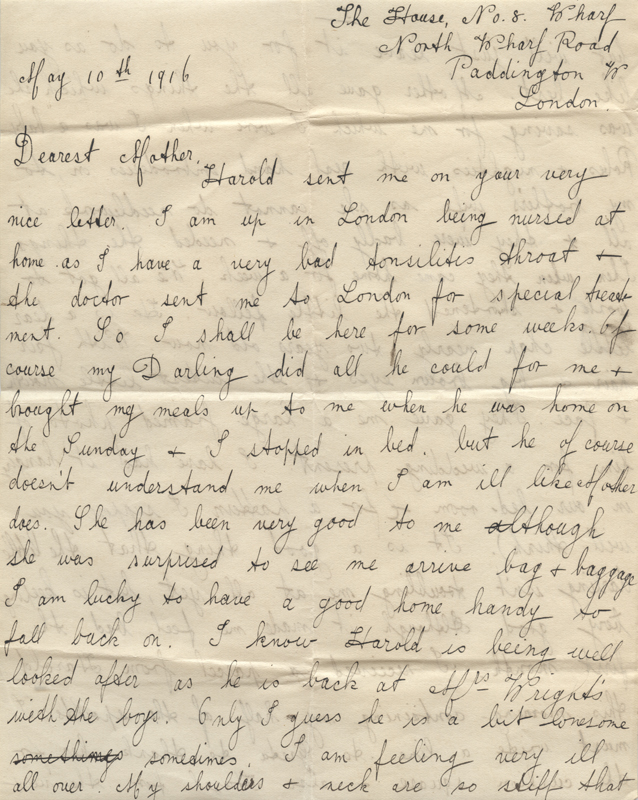 The House, No. 8. Wharf
North Wharf Road
Paddington W
London.
May 10th 1916
Dearest Mother,
Harold sent me on your very
nice letter. I am up in London being nursed at
home as I have a very bad tonsilitis throat +
the doctor sent me to London for special treat-
ment. So I shall be here for some weeks. Of
course my Darling did all he could for me +
brought my meals up to me when he was home on
the Sunday + I stopped in bed. but he of course
doesn't understand me when I am ill like Mother
does. She has been very good to me although
she was surprised to see me arrive bag + baggage
I am lucky to have a good home handy to
fall back on. I know Harold is being well
looked after as he is back at Mrs Wright's
with the boys Only I guess he is a bit lonesome
somethings sometimes. I am feeling very ill
all over. My shoulders + neck are so stiff that